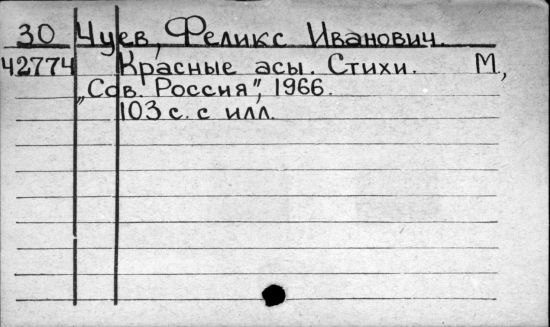 30 Чуев, Феликс Иванович.
42774 Красные асы. Стихи. М.,
„Сов. Россия", 1966.
103 с. с илл.